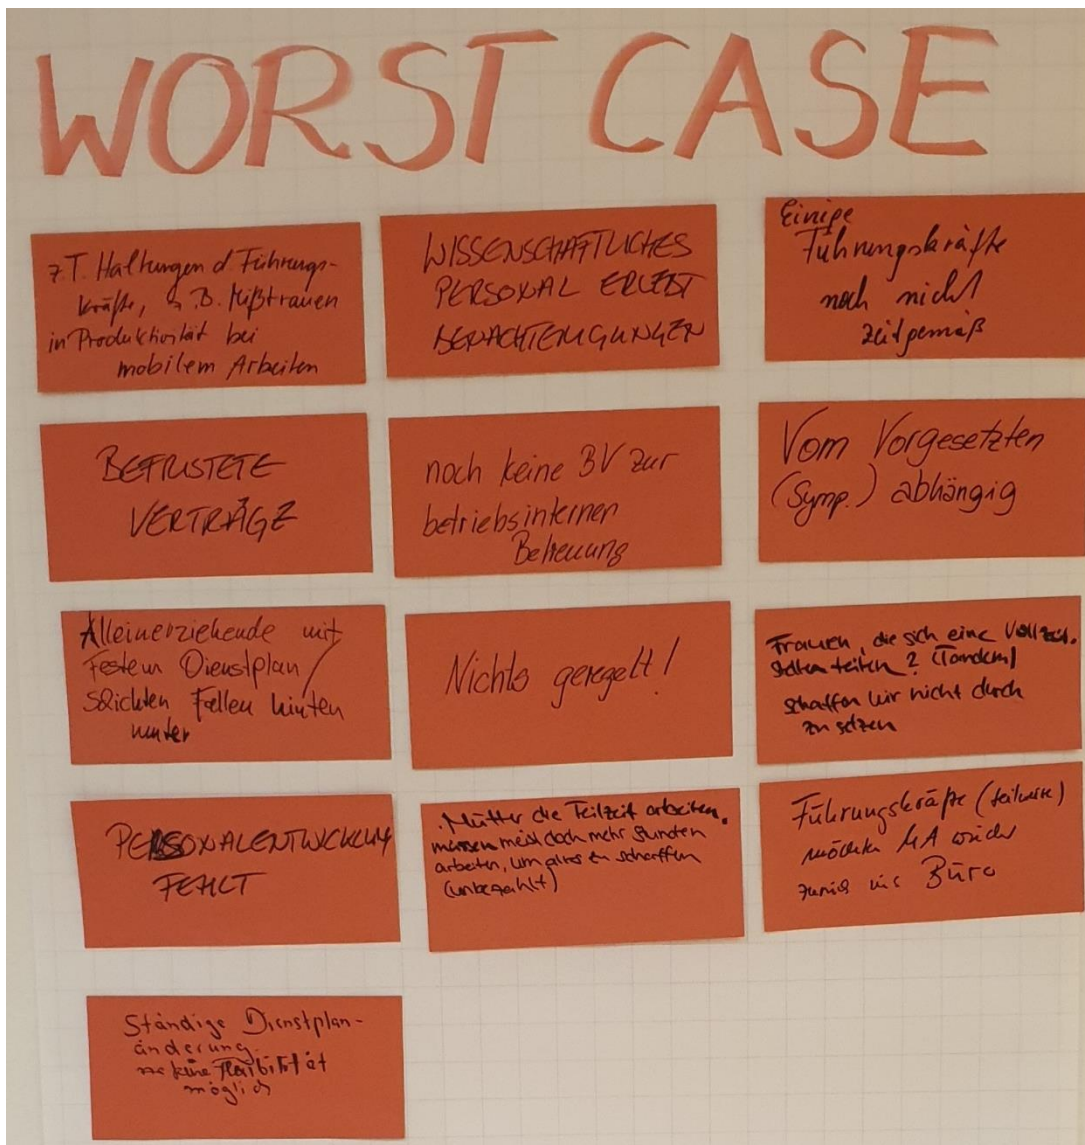 WORST CASE
z.T. Haltungen d. Führungs-
kräfte, z.B. Mißtrauen
in Produktivität bei
mobilem Arbeiten
WISSENSCHAFTLICHES
PERSONAL ERLEBT
BENACHTEILIGUNGEN
Einige
Führungskräfte
noch nicht
zeitgemäß
BEFRISTETE
VERTRÄGE
noch keine BV zur
betriebsinternen
Betreuung
Vom Vorgesetzten
(Symp.) abhängig
Alleinerziehende mit
festem Dienstplan/
Schichten Fallen hinten
runter
Nichts geregelt!
Frauen, die sich eine Vollzeit-
stelle teilen? (Tandem)
schaffen wir nicht durch
zu setzen
PERSONALENTWICKLUNG
FEHLT
Mütter die Teilzeit arbeiten,
müssen meist doch mehr Stunden
arbeiten, um alles zu schaffen
(unbezahlt)
Führungskräfte (teilweise)
möchten MA wieder
zurück ins Büro
Ständige Dienstplan-
änderung
keine Flexibilität
möglich